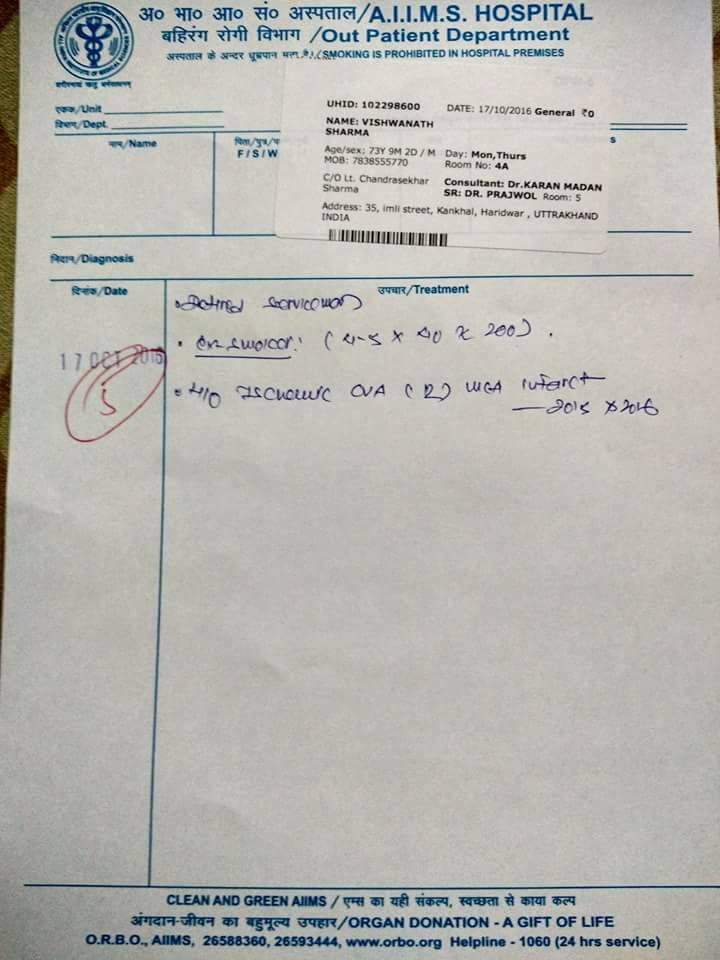 अ० भा० आ० सं० अस्पताल/A.I.I.M.S. HOSPITAL
बहिरंग रोगी विभाग /Out Patient Department
अस्पताल के अन्दर धूम्रपान मना है/SMOKING IS PROHIBITED IN HOSPITAL PREMISES
एकक/Unit
विभाग/Dept.
नाम/Name
पिता/पुत्र/प
F/S/W
s
UHID: 102298600 DATE: 17/10/2016 General ₹0
NAME: VISHWANATH SHARMA
Age/sex: 73Y 9M 2D / M Day: Mon,Thurs
MOB: 7838555770 Room No: 4A
C/O Lt. Chandrasekhar Sharma
Consultant: Dr.KARAN MADAN
SR: DR. PRAJWOL Room: 5
Address: 35, imli street, Kankhal, Haridwar , UTTRAKHAND
INDIA
निदान/Diagnosis
दिनांक/Date उपचार/Treatment
• Retired serviceman
17 OCT 2016
5
• Ex smoker: (4-5 x 40 x 200).
• H/O Ischemic CVA (R) MCA infarct
— 2015 x 2016
CLEAN AND GREEN AIIMS / एम्स का यही संकल्प, स्वच्छता से काया कल्प
अंगदान-जीवन का बहुमूल्य उपहार/ORGAN DONATION - A GIFT OF LIFE
O.R.B.O., AIIMS, 26588360, 26593444, www.orbo.org Helpline - 1060 (24 hrs service)